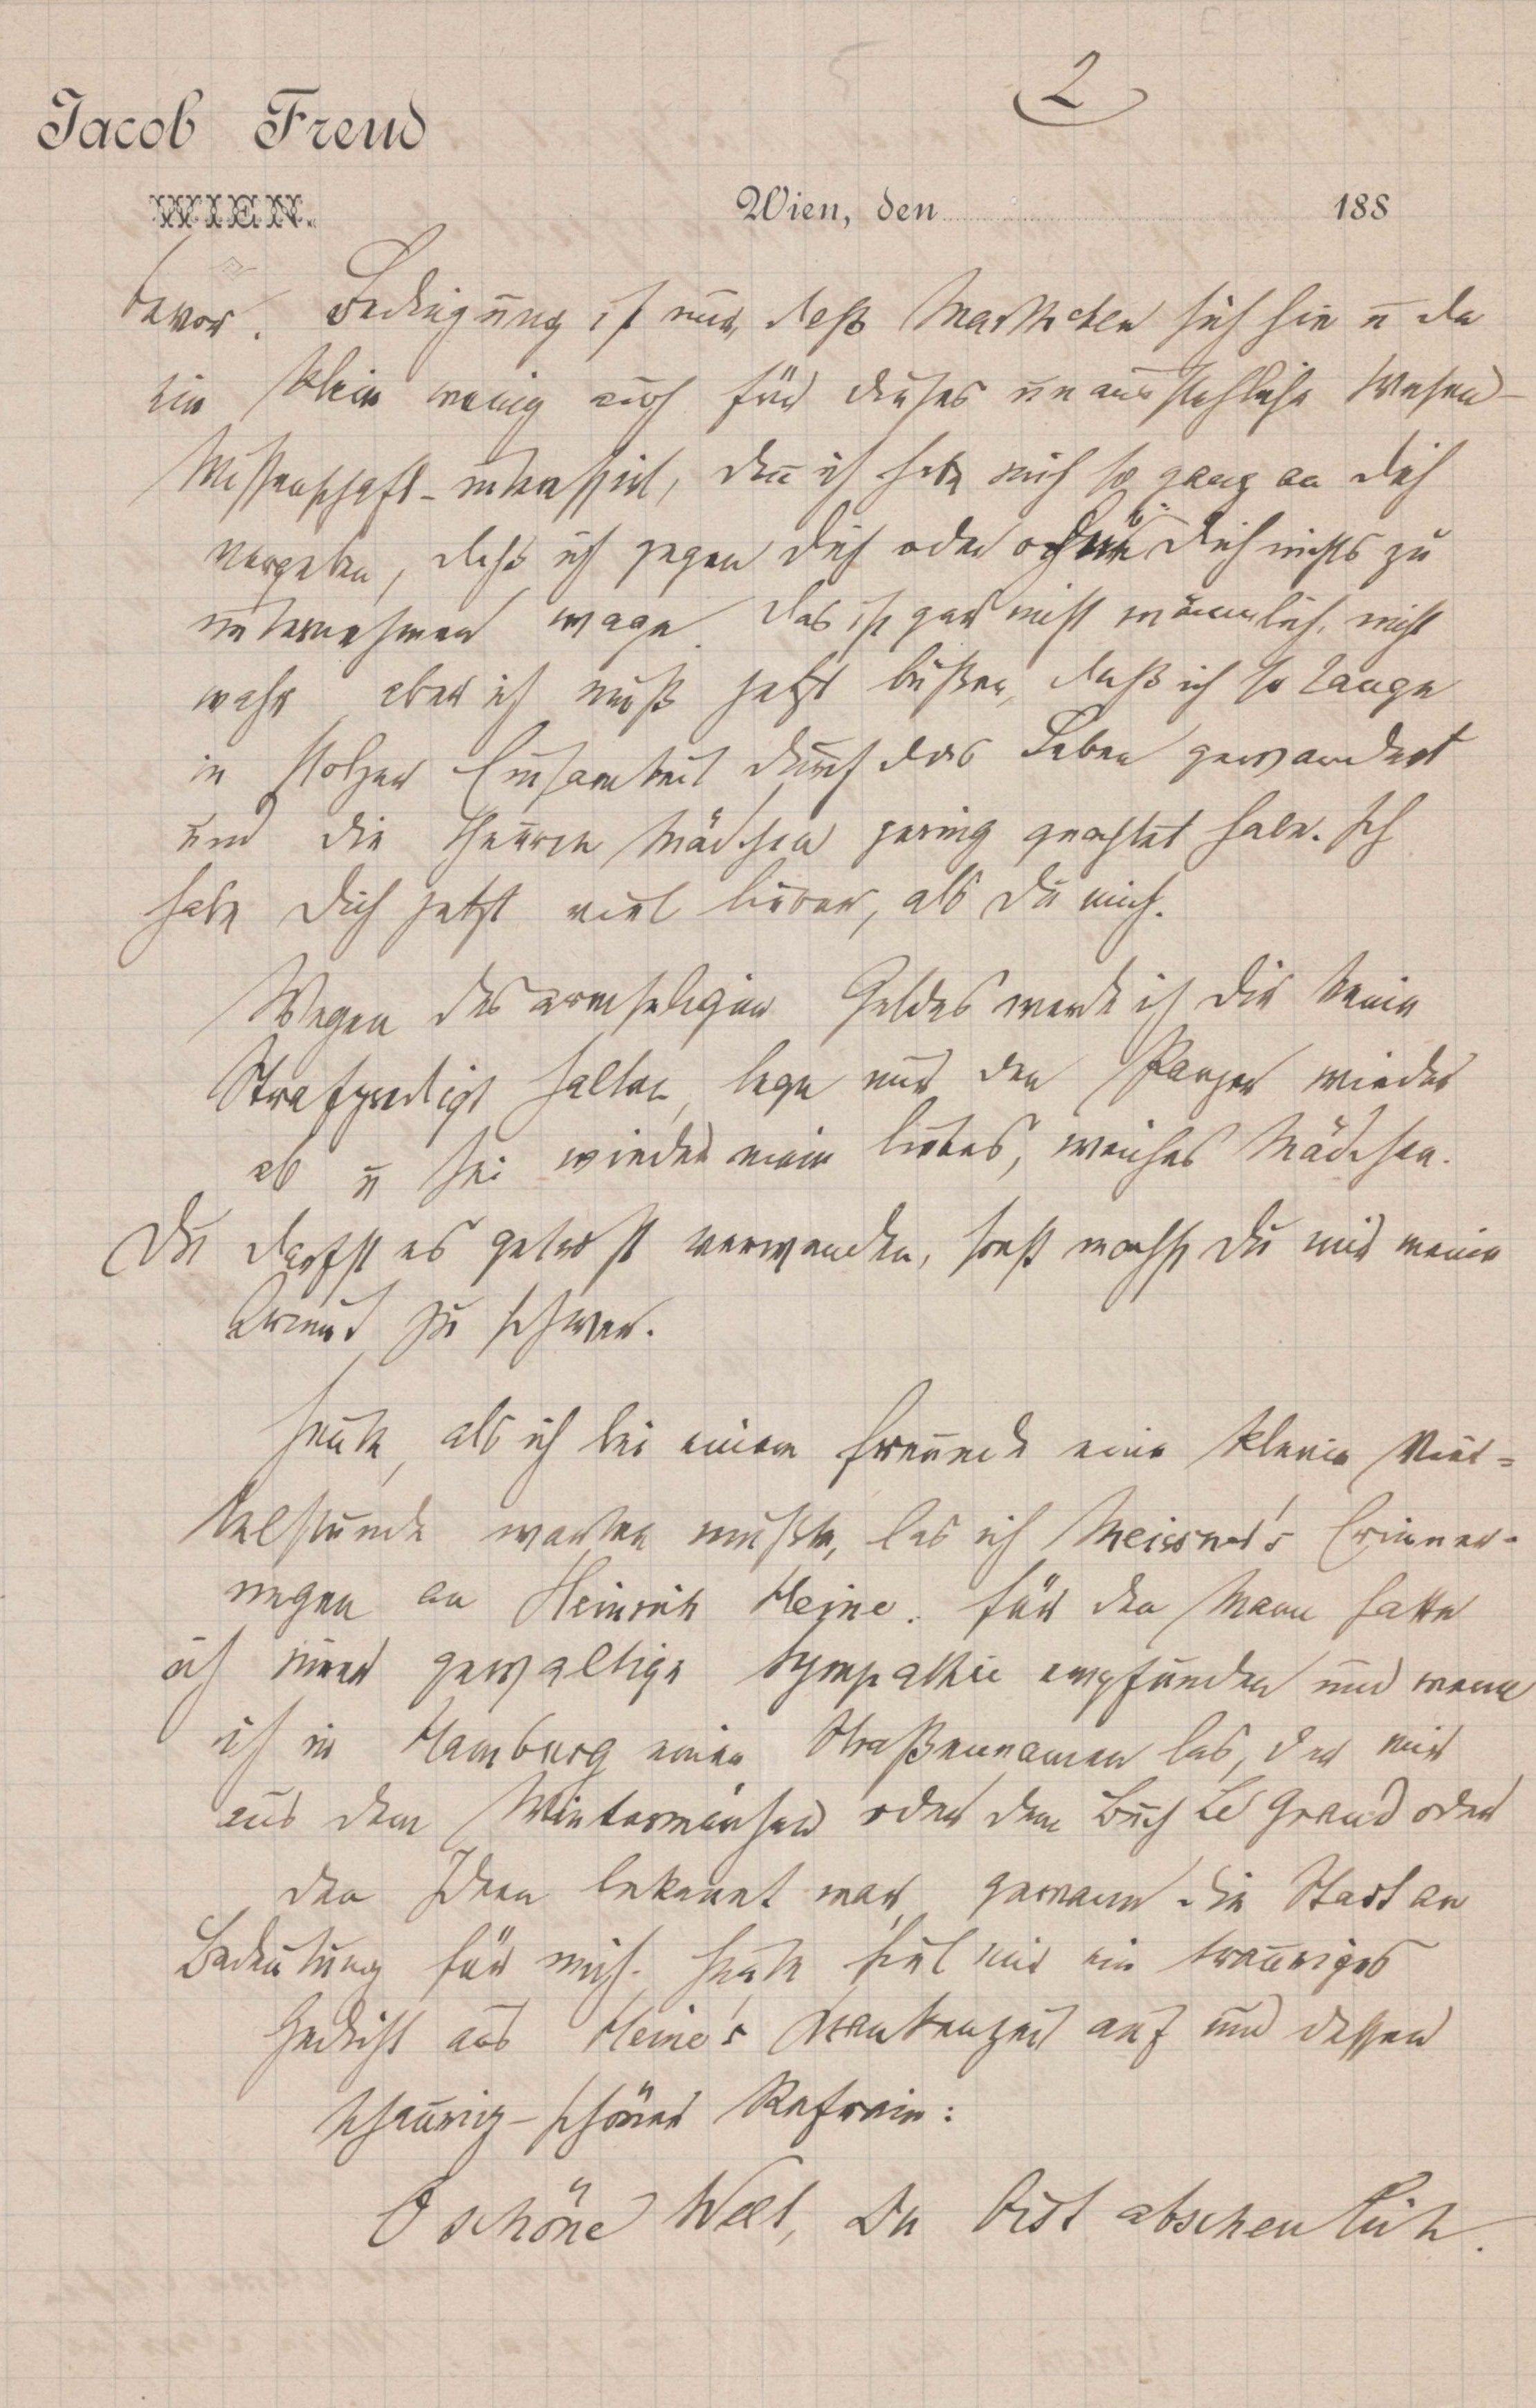 2
Jacob Freud
WIEN.
Wien, den 188
bevor. Bedingung ist nur, daß Marthchen sich hie u da
ein klein wenig auch für dieses unausstehliche Wesen –
Wissenschaft – interessirt, den ich habe mich so ganz an Dich
vergeben, daß ich gegen Dich oder ohne Dich nichts zu
unternehmen wage. Das ist gar nicht männlich, nicht
wahr, aber ich muß jetzt büßen, daß ich so lange
in stolzer Einsamkeit durch das Leben gewandert
und die theuren Mädchen gering geachtet habe. Ich
habe Dich jetzt viel lieber, als Du mich.
Wegen des armseligen Geldes werde ich Dir keine
Strafpredigt halten, lege nur den Panzer wieder
ab u sei wieder mein liebes, weiches Mädchen.
Du darfst es getrost verwenden, sonst machst Du mir meine
Armut zu schwer.
Heute, als ich bei einem Freunde eine kleine Vier=
telstunde warten mußte, las ich Meissner's Erinner-
ungen an Heinrich Heine. Für den Mann hatte
ich immer gewaltige Sympathie empfunden und wenn
ich in Hamburg einen Straßennamen las, der mir
aus dem Wintermärchen oder dem Buch Le Grand oder
den Ideen bekannt war, gewann die Stadt an
Bedeutung für mich. Heute fiel mir ein trauriges
Gedicht aus Heine's Krankenzeit auf und dessen
schaurig-schöner Refrain:
O schöne Welt, Du bist abscheulich.